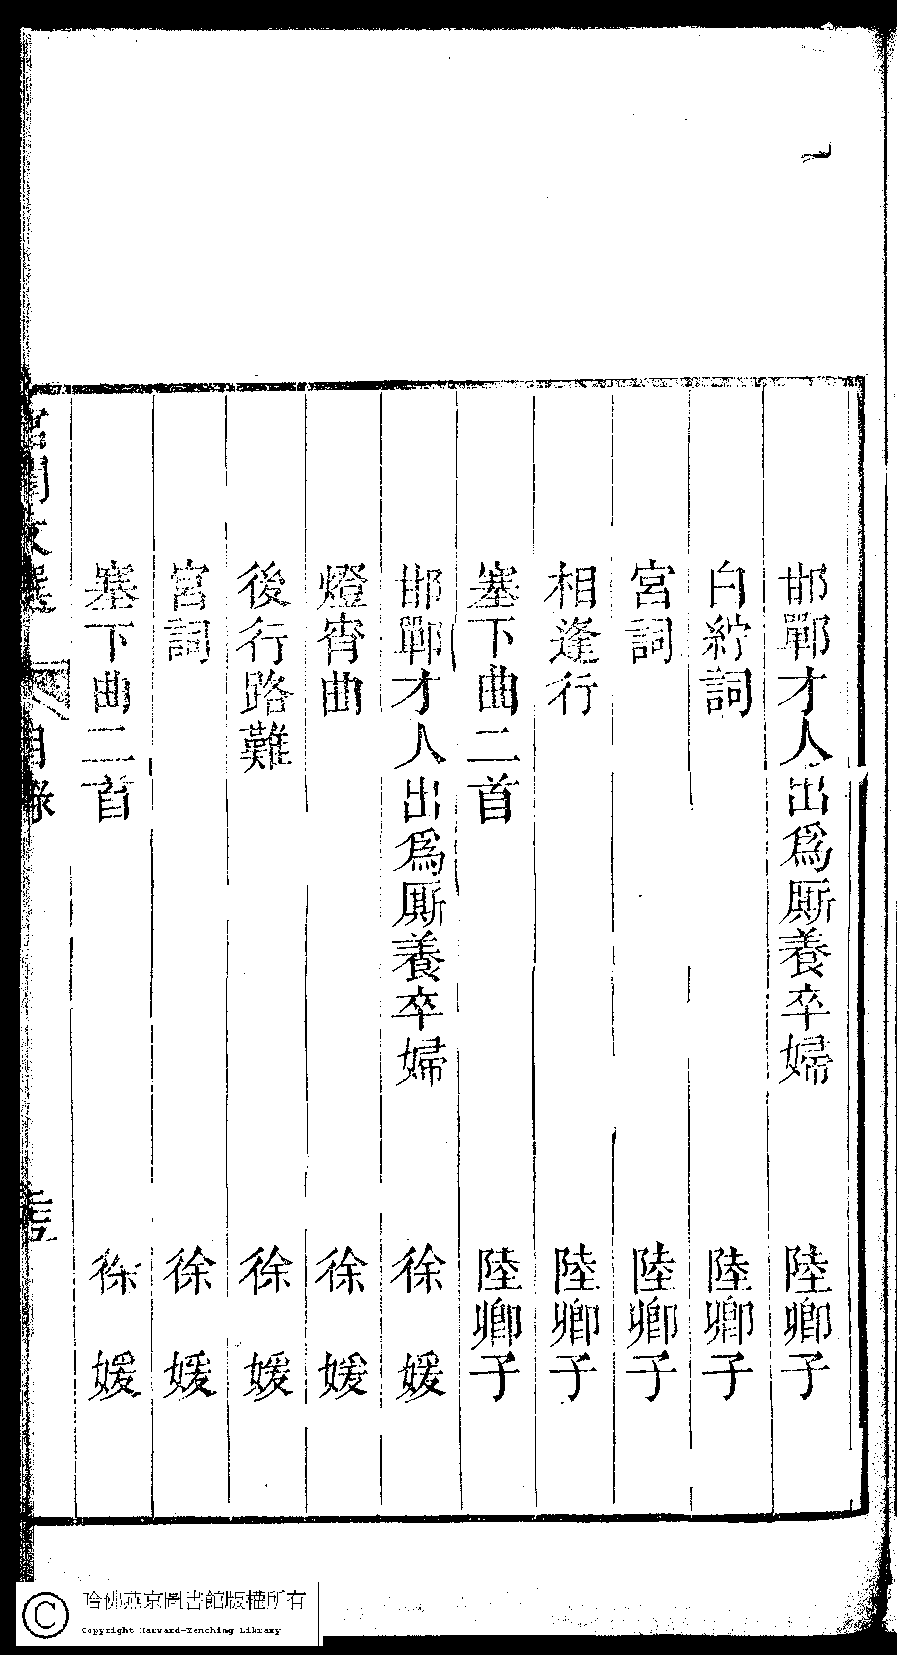 邯鄲才人出爲厮養卒婦 陸卿子
白紵詞 陸卿子
宮詞 陸卿子
相逢行 陸卿子
塞下曲二首 陸卿子
邯鄲才人出爲厮養卒婦 徐媛
燈宵曲 徐媛
後行路難 徐媛
宮詞 徐媛
塞下曲二首 徐媛
宮閨文選 目錄
哈佛燕京圖書館版權所有
Copyright Harvard-Yenching Library